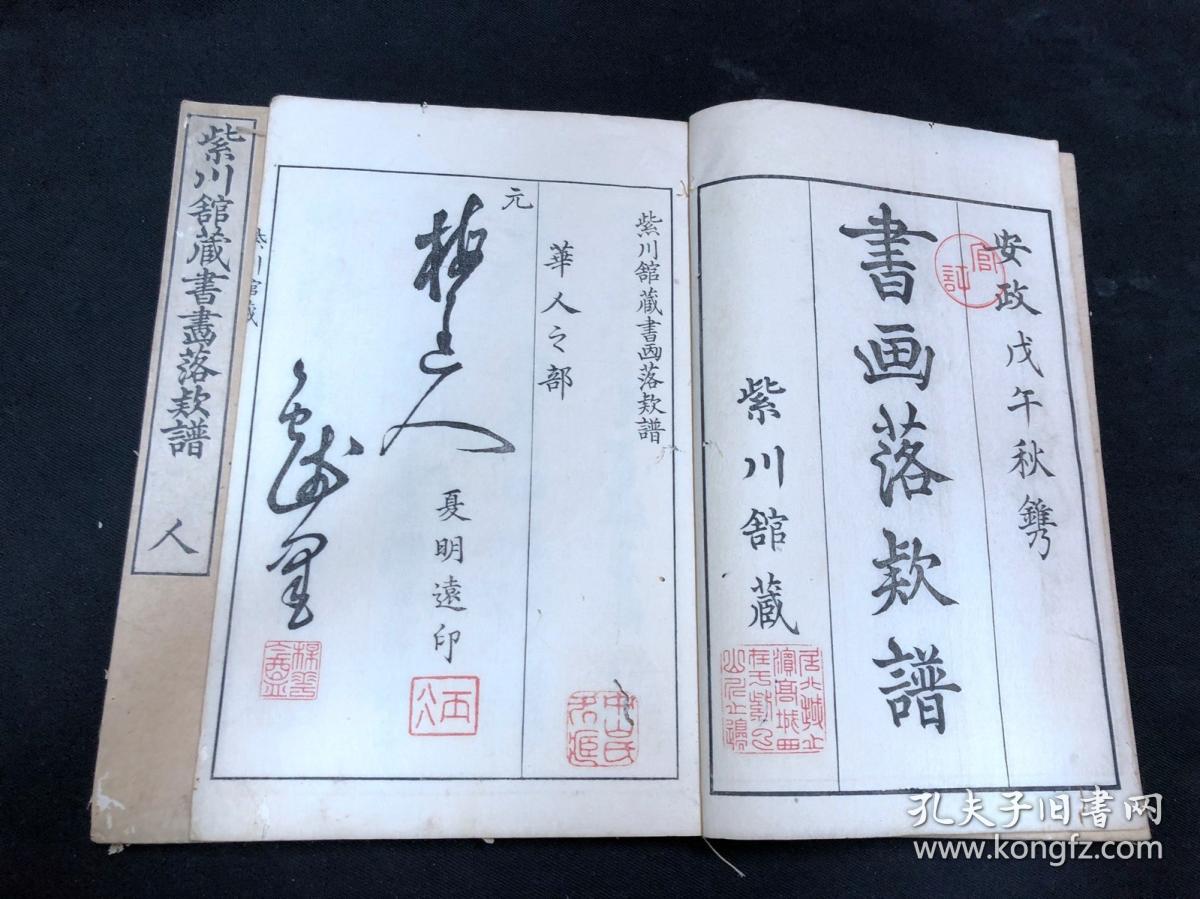 安政戊午秋鐫
官許
書画落款譜
紫川舘藏
紫川舘藏書画落款譜
華人之部
元
梅道人
夏明遠印
紫川舘藏
紫川舘藏書畫落款譜
人
孔夫子旧书网
www.kongfz.com